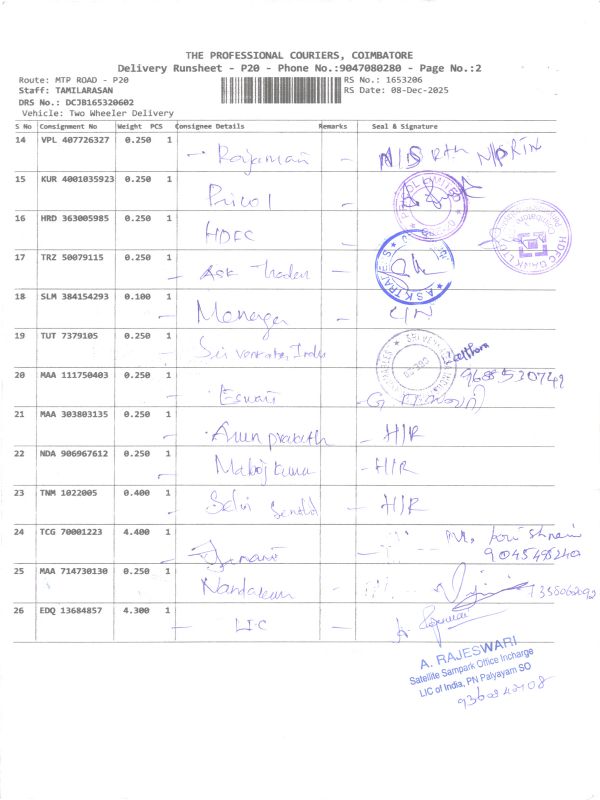 THE PROFESSIONAL COURIERS, COIMBATORE
Delivery Runsheet - P20 - Phone No.:9047080280 - Page No.:2
Route: MTP ROAD - P20 RS No.: 1653206
Staff: TAMILARASAN RS Date: 08-Dec-2025
DRS No.: DCJB165320602
Vehicle: Two Wheeler Delivery
S No Consignment No Weight PCS Consignee Details Remarks Seal & Signature
14 VPL 407726327 0.250 1 Rajamani
15 KUR 4001035923 0.250 1 Pricol
16 HRD 363005985 0.250 1 HDFC
HDFC BANK LTD
17 TRZ 50079115 0.250 1 Ask Traders
ASK TRADERS
18 SLM 384154293 0.100 1 Manager
19 TUT 7379105 0.250 1 Sri Venkates
20 MAA 111750403 0.250 1 Eswari 9688530749
21 MAA 303803135 0.250 1 Arun prakath H/R
22 NDA 906967612 0.250 1 Manoj Kumar H/R
23 TNM 1022005 0.400 1 Selvi H/R
24 TCG 70001223 4.400 1
9045498240
25 MAA 714730130 0.250 1 Nandakumar 7358062092
26 EDQ 13684857 4.300 1 LIC
A. RAJESWARI
Satellite Sampark Office Incharge
LIC of India, PN Palyayam SO